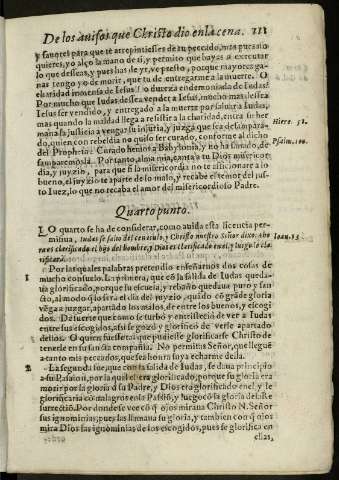 De los auisos que Christo dio en la cena. 111
y fauores para que te arrepintiesses de tu peccado, mas pues no
quieres, yo alço la mano de ti, y permito que vayas a executar
lo que desseas, y pues has de yr, ve presto, porque mayores ga-
nas tengo yo de morir, que tu de entregarme a la muerte. O
charidad inmensa de Iesus! o dureza endemoniada de Iudas!
Por mucho que Iudas dessea vender a Iesus, mucho mas dessea
Iesus ser vendido, y entregado a la muerte por saluar a Iudas,
mas quando la maldad llega a resistir a la charidad, entra su her
mana la justicia a vengar su injuria, y juzga que sea desampara-
do, quien con rebeldia no quiso ser curado, conforme al dicho
del Propheta: Curado hemos a Babylonia, y no ha sanado, de
samparemosla. Por tanto, alma mia, canta a tu Dios misericor
dia, y juyzio, para que si la misericordia no te aficionare a lo
bueno, el juyzio te aparte de lo malo, y no
Hiere. 51.
Psalm. 100.
Quarto punto.
LO quarto se ha de considerar, como auida esta licencia per-
missiua, Iudas se salio del cenaculo, y Christo nuestro Señor dixo: Aho
ra es clarificado el hijo del hombre, y Dios es clarificado en el, y luego lo cla-
rificará
Ioan. 13
Por las quales palabras pretendio enseñarnos dos cosas de
1 mucho consuelo. La primera, que con la salida de Iudas queda-
uia glorificado, porque su escuela, y rebaño quedaua puro y san-
cto, al modo que lo sera el dia del juyzio, quando con grande gloria
vega a juzgar, apartado los malos, de entre los buenos, y escogi
dos. De suerte que como se turbó y entristecio de ver a Iudas
entre sus escogidos, assi se gozó y glorificó de verle apartado
dellos. O quien fuesse tal que pudiesse glorificarse Christo de
tenerle en su sancta compañia. No permitas Señor, que llegue
a tanto mis peccados, que sea honra tuya echarme de ella.
2 La segunda fue, que con la salida de Iudas, se daua principio
a su Passion, por la qual era glorificado, porque su gloria era
morir por la gloria de su Padre, y Dios era glorificado en el, y le
glorificaria con milagros en la Passion, y luego con la gloria de la Re
surrection. Por donde se vee con que ojos miraua Christo N. Señor
sus ignominias, pues las llamaua su gloria, y tambien con que ojos
mira Dios las ignominias de los escogidos, pues se glorifica en
ellas,